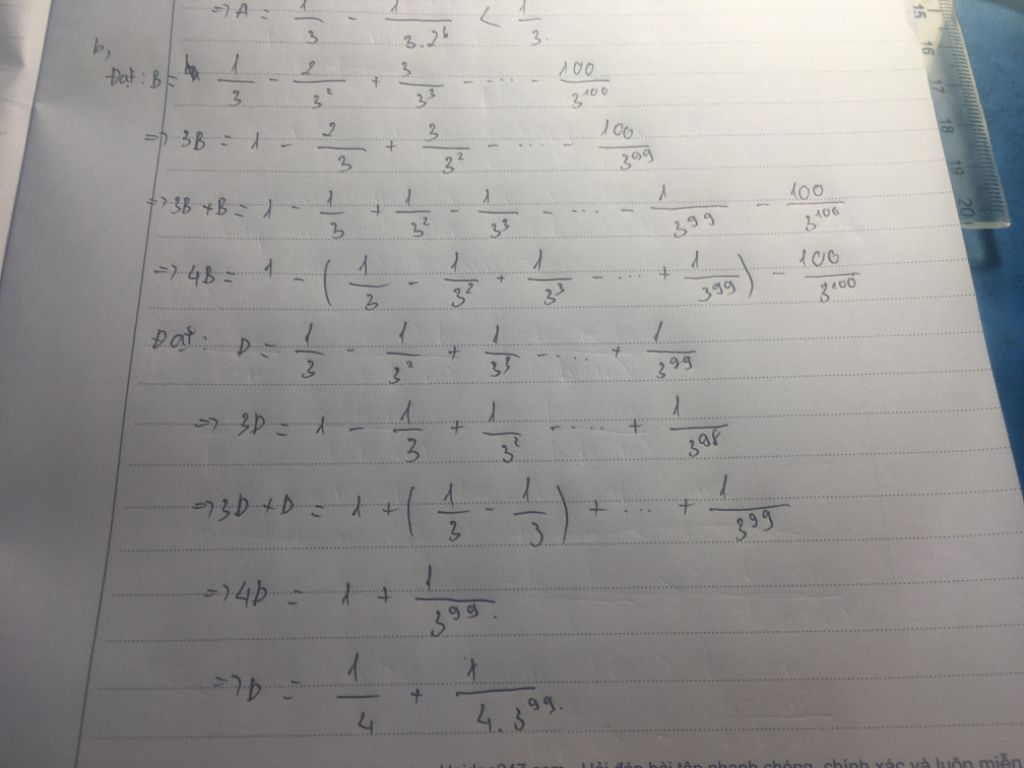 => A = 1/3 - 1/(3.2^6) < 1/3.
b,
Đặt: B = 1/3 - 2/3^2 + 3/3^3 - ... - 100/3^100
=> 3B = 1 - 2/3 + 3/3^2 - ... - 100/3^99
=> 3B + B = 1 - 1/3 + 1/3^2 - 1/3^3 - ... - 1/3^99 - 100/3^100
=> 4B = 1 - (1/3 - 1/3^2 + 1/3^3 - ... + 1/3^99) - 100/3^100
Đặt: D = 1/3 - 1/3^2 + 1/3^3 - ... + 1/3^99
=> 3D = 1 - 1/3 + 1/3^2 - ... + 1/3^98
=> 3D + D = 1 + (1/3 - 1/3) + ... + 1/3^99
=> 4D = 1 + 1/3^99.
=> D = 1/4 + 1/(4.3^99).
Hỏi đáp bài tập nhanh chóng, chính xác và luôn miễn
15
16
17
18
19
20